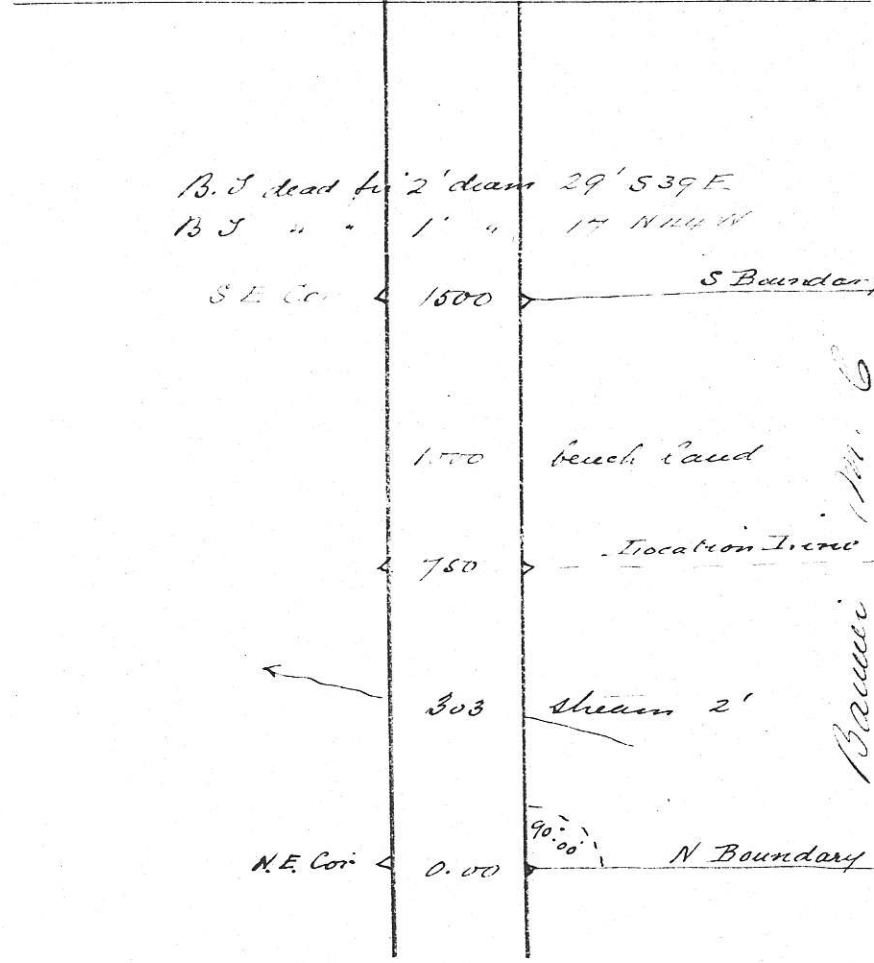 B.T dead fir 2' diam 29' S39E
B T " " 1' " 17 N44W
S E Cor 1500 S Boundary
1000 bench land
750 Location Line
303 stream 2'
90:00'
N.E. Cor 0.00 N Boundary
Banner M. C